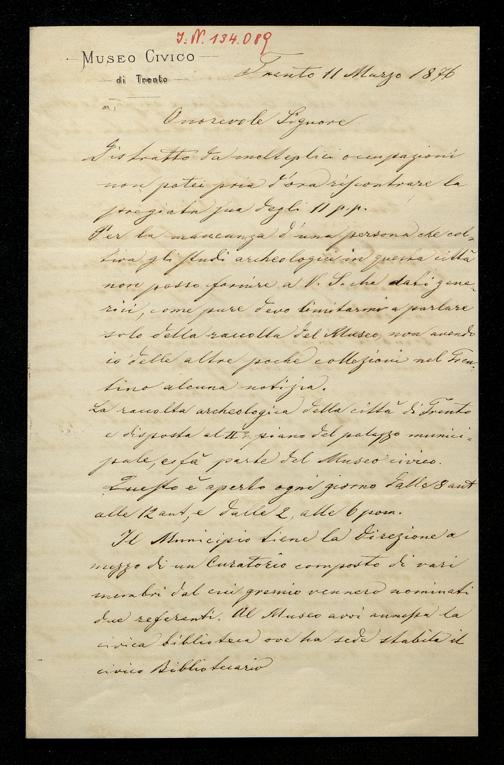 J: N. 134.089
MUSEO CIVICO
di Trento
Trento 11 Marzo 1876
Onorevole Signore
Distratto da molteplici occupazioni
non potei pria d'ora riscontrare la
pregiata sua degli 11 p.p.
Per la mancanza d'una persona che col-
tiva gli studi archeologici in questa città
non posso fornire a V. S. che dati gene-
rici, come pure devo limitarmi a parlare
solo della raccolta del Museo, non avendo
io delle altre poche collezioni nel Tren-
tino alcuna notizia.
La raccolta archeologica della città di Trento
è disposta al IIº piano del palazzo munici-
pale, e fà parte del Museo civico.
Questo è aperto ogni giorno dalle 8 ant
alle 12 ant, e dalle 2, alle 6 pom.
Il Municipio tiene la direzione a
mezzo di un Curatorio composto di vari
membri dal cui gremio vennero nominati
due referenti. Al Museo avvi annessa la
civica biblioteca ove ha sede stabile il
civico Bibliotecario